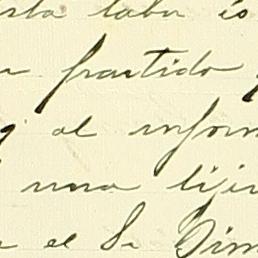 esta labor es
partido
y al infor
una lije
el Sr Dim